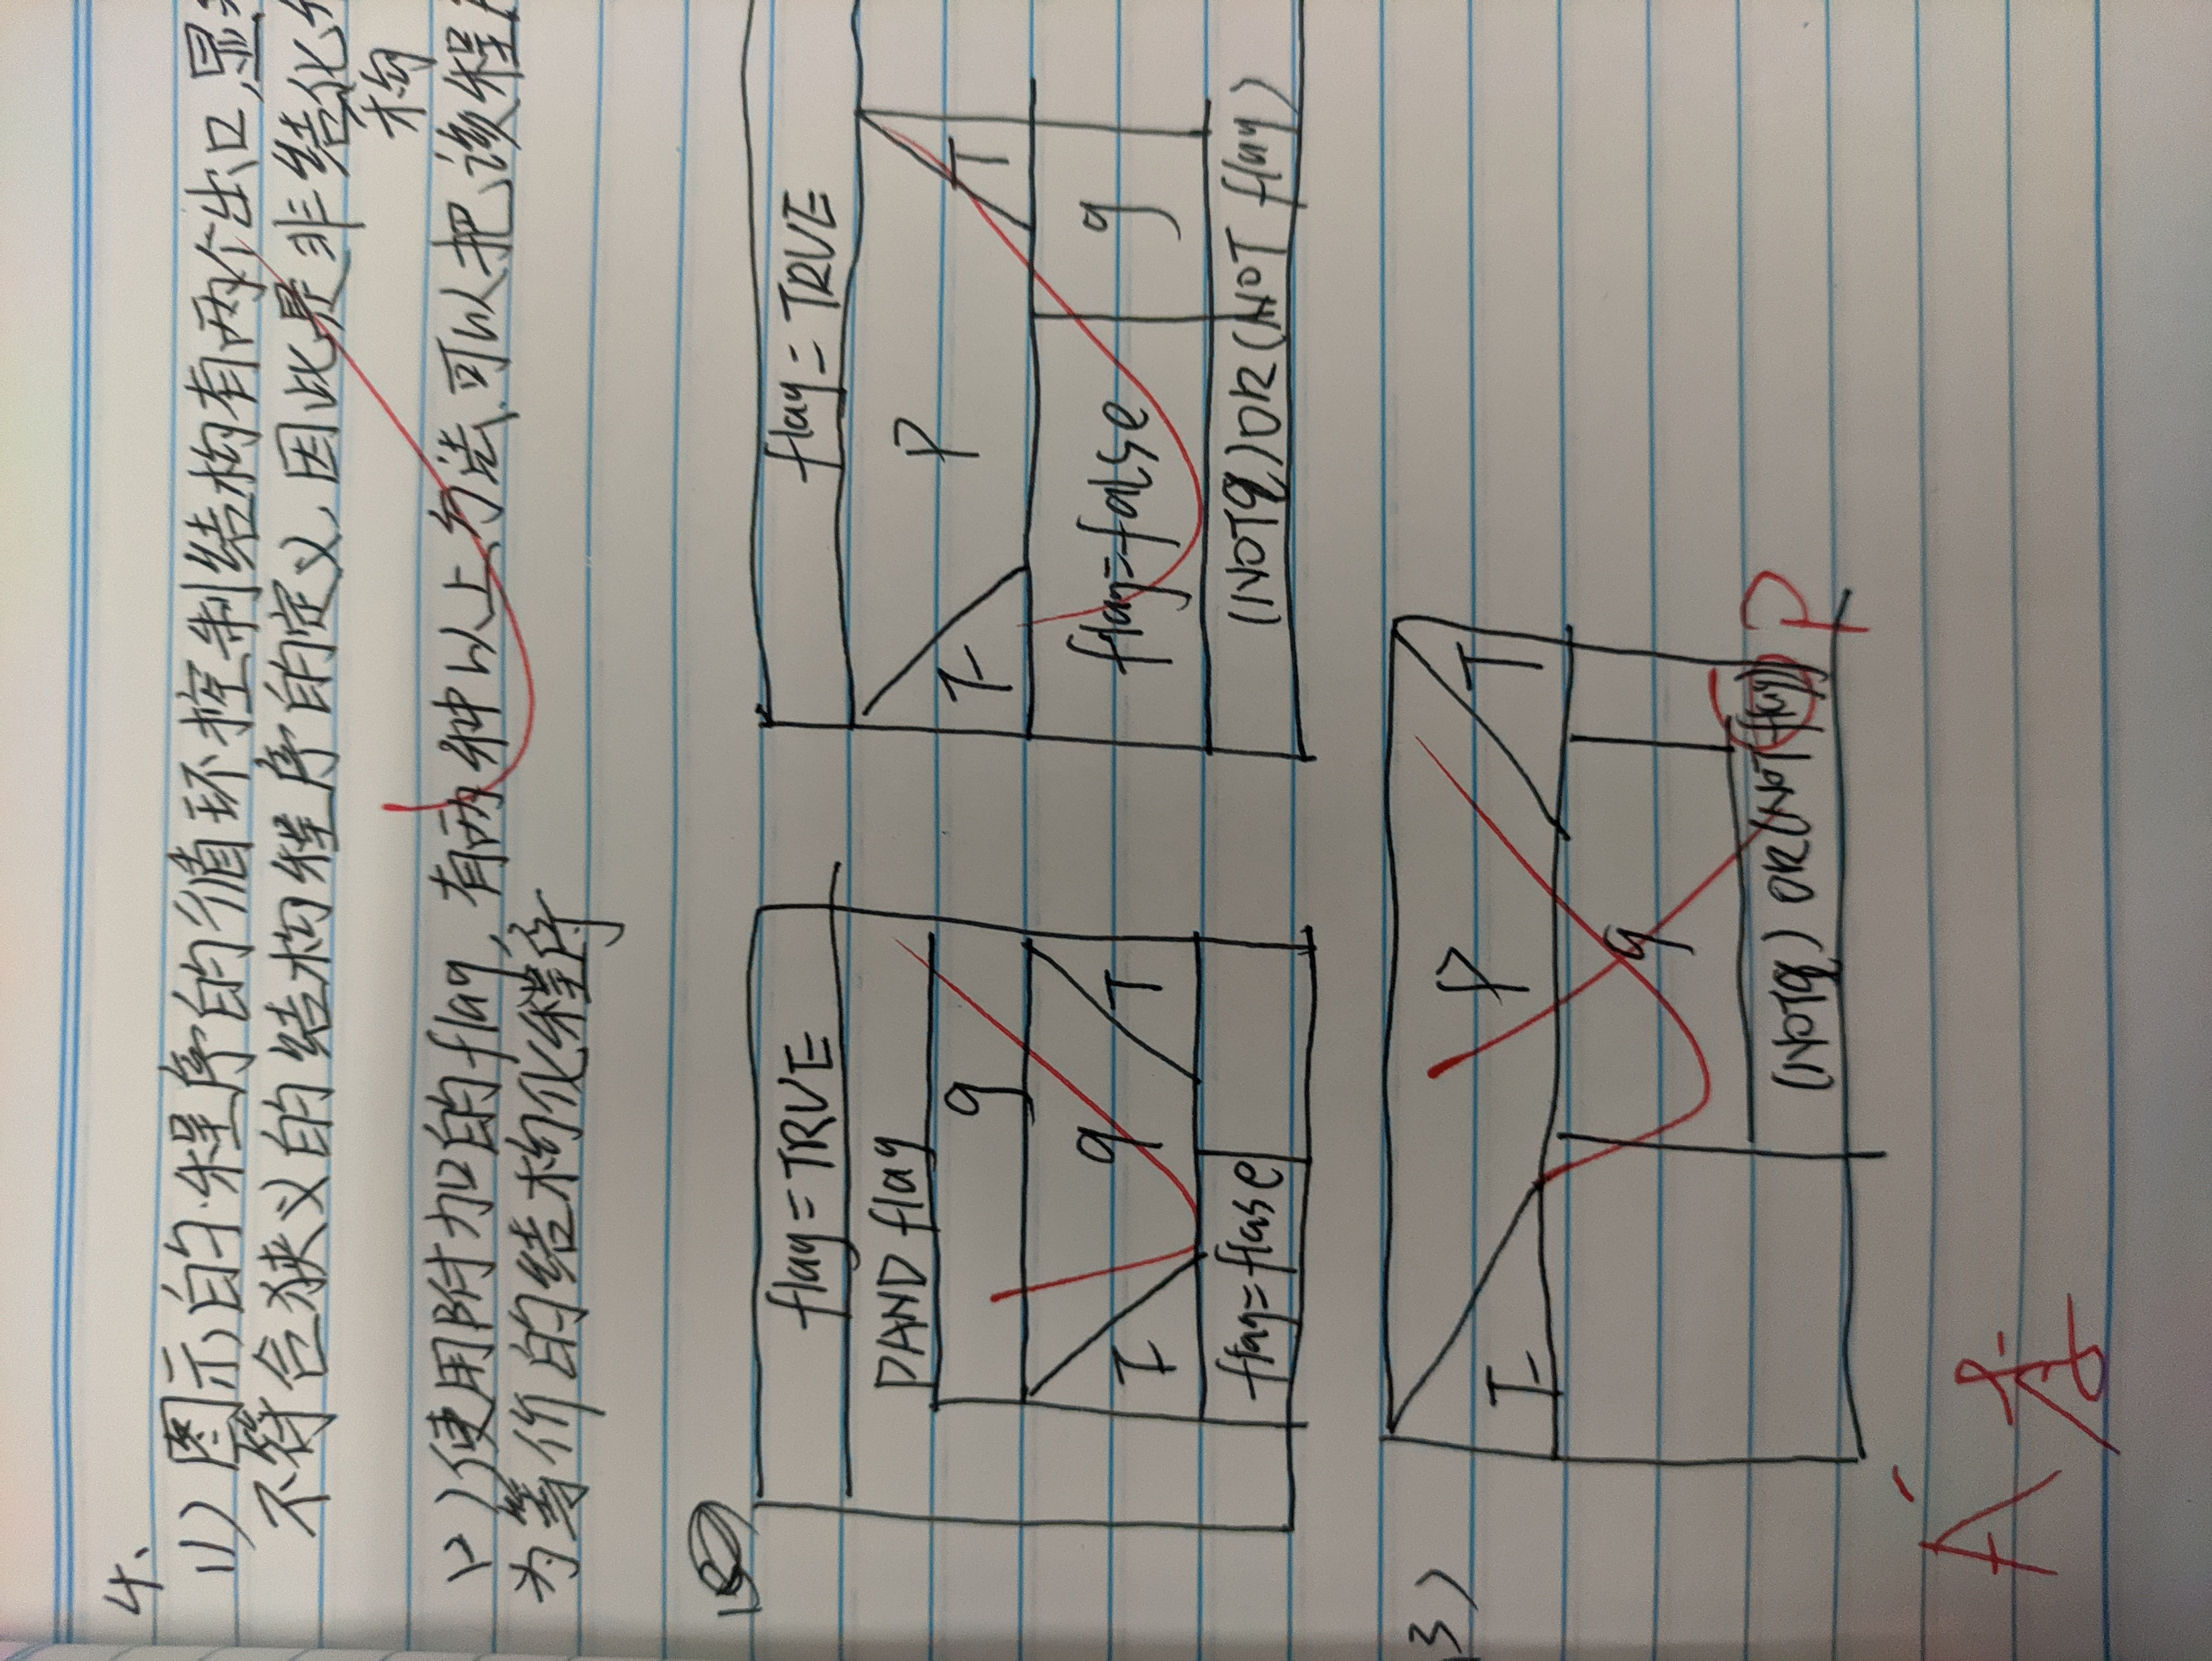 4、
(1) 图示的程序的循环控制结构有两个出口,显
不符合狭义的结构程序的定义,因此是非结化
构
(2) 使用附加的flag,有两种以上方法,可以把该程
为等价的结构化程序
flag=TRUE
PAND flag
g
q
F
T
flag=flase
flag=TRUE
P
F
T
flag=false
g
(NOTq)OR(NOT flag)
3)
P
F
T
g
(NOTq) OR(NOT flag)
P
A